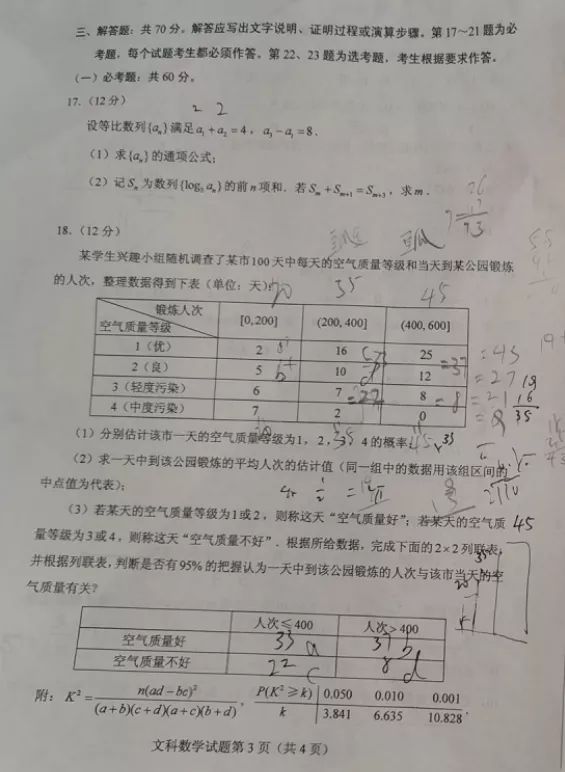 三、解答题：共70分。解答应写出文字说明、证明过程或演算步骤。第17～21题为必
考题，每个试题考生都必须作答。第22、23题为选考题，考生根据要求作答。
（一）必考题：共60分。
17.（12分）
2 2
设等比数列{aₙ}满足a₁+a₂=4，a₃-a₁=8．
（1）求{aₙ}的通项公式；
（2）记Sₙ为数列{log₃aₙ}的前n项和．若Sₘ+Sₘ₊₁=Sₘ₊₃，求m．
18.（12分）
某学生兴趣小组随机调查了某市100天中每天的空气质量等级和当天到某公园锻炼
的人次，整理数据得到下表（单位：天）：
20 35 45
锻炼人次
空气质量等级 [0,200] (200,400] (400,600]
1（优） 2 16 25 =43
2（良） 5 10 12 =27
3（轻度污染） 6 7 8 =21
4（中度污染） 7 2 0 =9
（1）分别估计该市一天的空气质量等级为1，2，3，4的概率；
（2）求一天中到该公园锻炼的平均人次的估计值（同一组中的数据用该组区间的
中点值为代表）；
（3）若某天的空气质量等级为1或2，则称这天“空气质量好”；若某天的空气质 45
量等级为3或4，则称这天“空气质量不好”．根据所给数据，完成下面的2×2列联表，
并根据列联表，判断是否有95%的把握认为一天中到该公园锻炼的人次与该市当天的空
气质量有关？
人次≤400 人次>400
空气质量好 33 a 37 b
空气质量不好 22 c 8 d
附：K²=n(ad-bc)²/((a+b)(c+d)(a+c)(b+d))，
P(K²≥k) 0.050 0.010 0.001
k 3.841 6.635 10.828．
文科数学试题第3页（共4页）